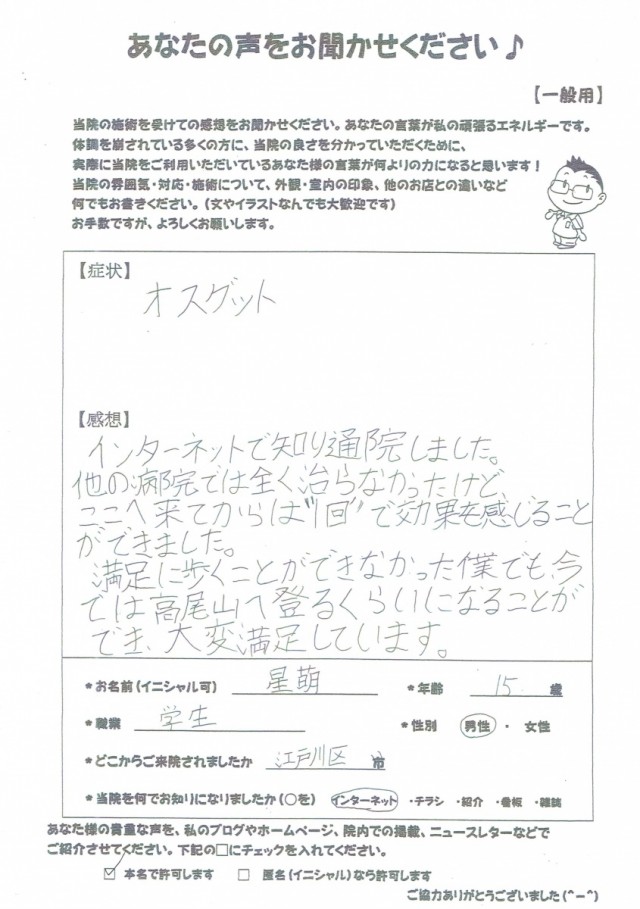 あなたの声をお聞かせください♪
【一般用】
当院の施術を受けての感想をお聞かせください。あなたの言葉が私の頑張るエネルギーです。
体調を崩されている多くの方に、当院の良さを分かっていただくために、
実際に当院をご利用いただいているあなた様の言葉が何よりの力になると思います！
当院の雰囲気・対応・施術について、外観・室内の印象、他のお店との違いなど
何でもお書きください。（文やイラストなんでも大歓迎です）
お手数ですが、よろしくお願いします。
【症状】
オスグット
【感想】
インターネットで知り通院しました。
他の病院では全く治らなかったけど
ここへ来てからは"1回"で効果を感じること
ができました。
満足に歩くことができなかった僕でも、今
では高尾山へ登るくらいになることが
でき、大変満足しています。
*お名前（イニシャル可） 星萌 *年齢 15 歳
*職業 学生 *性別 男性・女性
*どこからご来院されましたか 江戸川区 市
*当院を何でお知りになりましたか（○を） インターネット ・チラシ ・紹介 ・看板 ・雑誌
あなた様の貴重な声を、私のブログやホームページ、院内での掲載、ニュースレターなどで
ご紹介させてください。下記の□にチェックを入れてください。
☑ 本名で許可します □ 匿名（イニシャル）なら許可します
ご協力ありがとうございました（^-^）